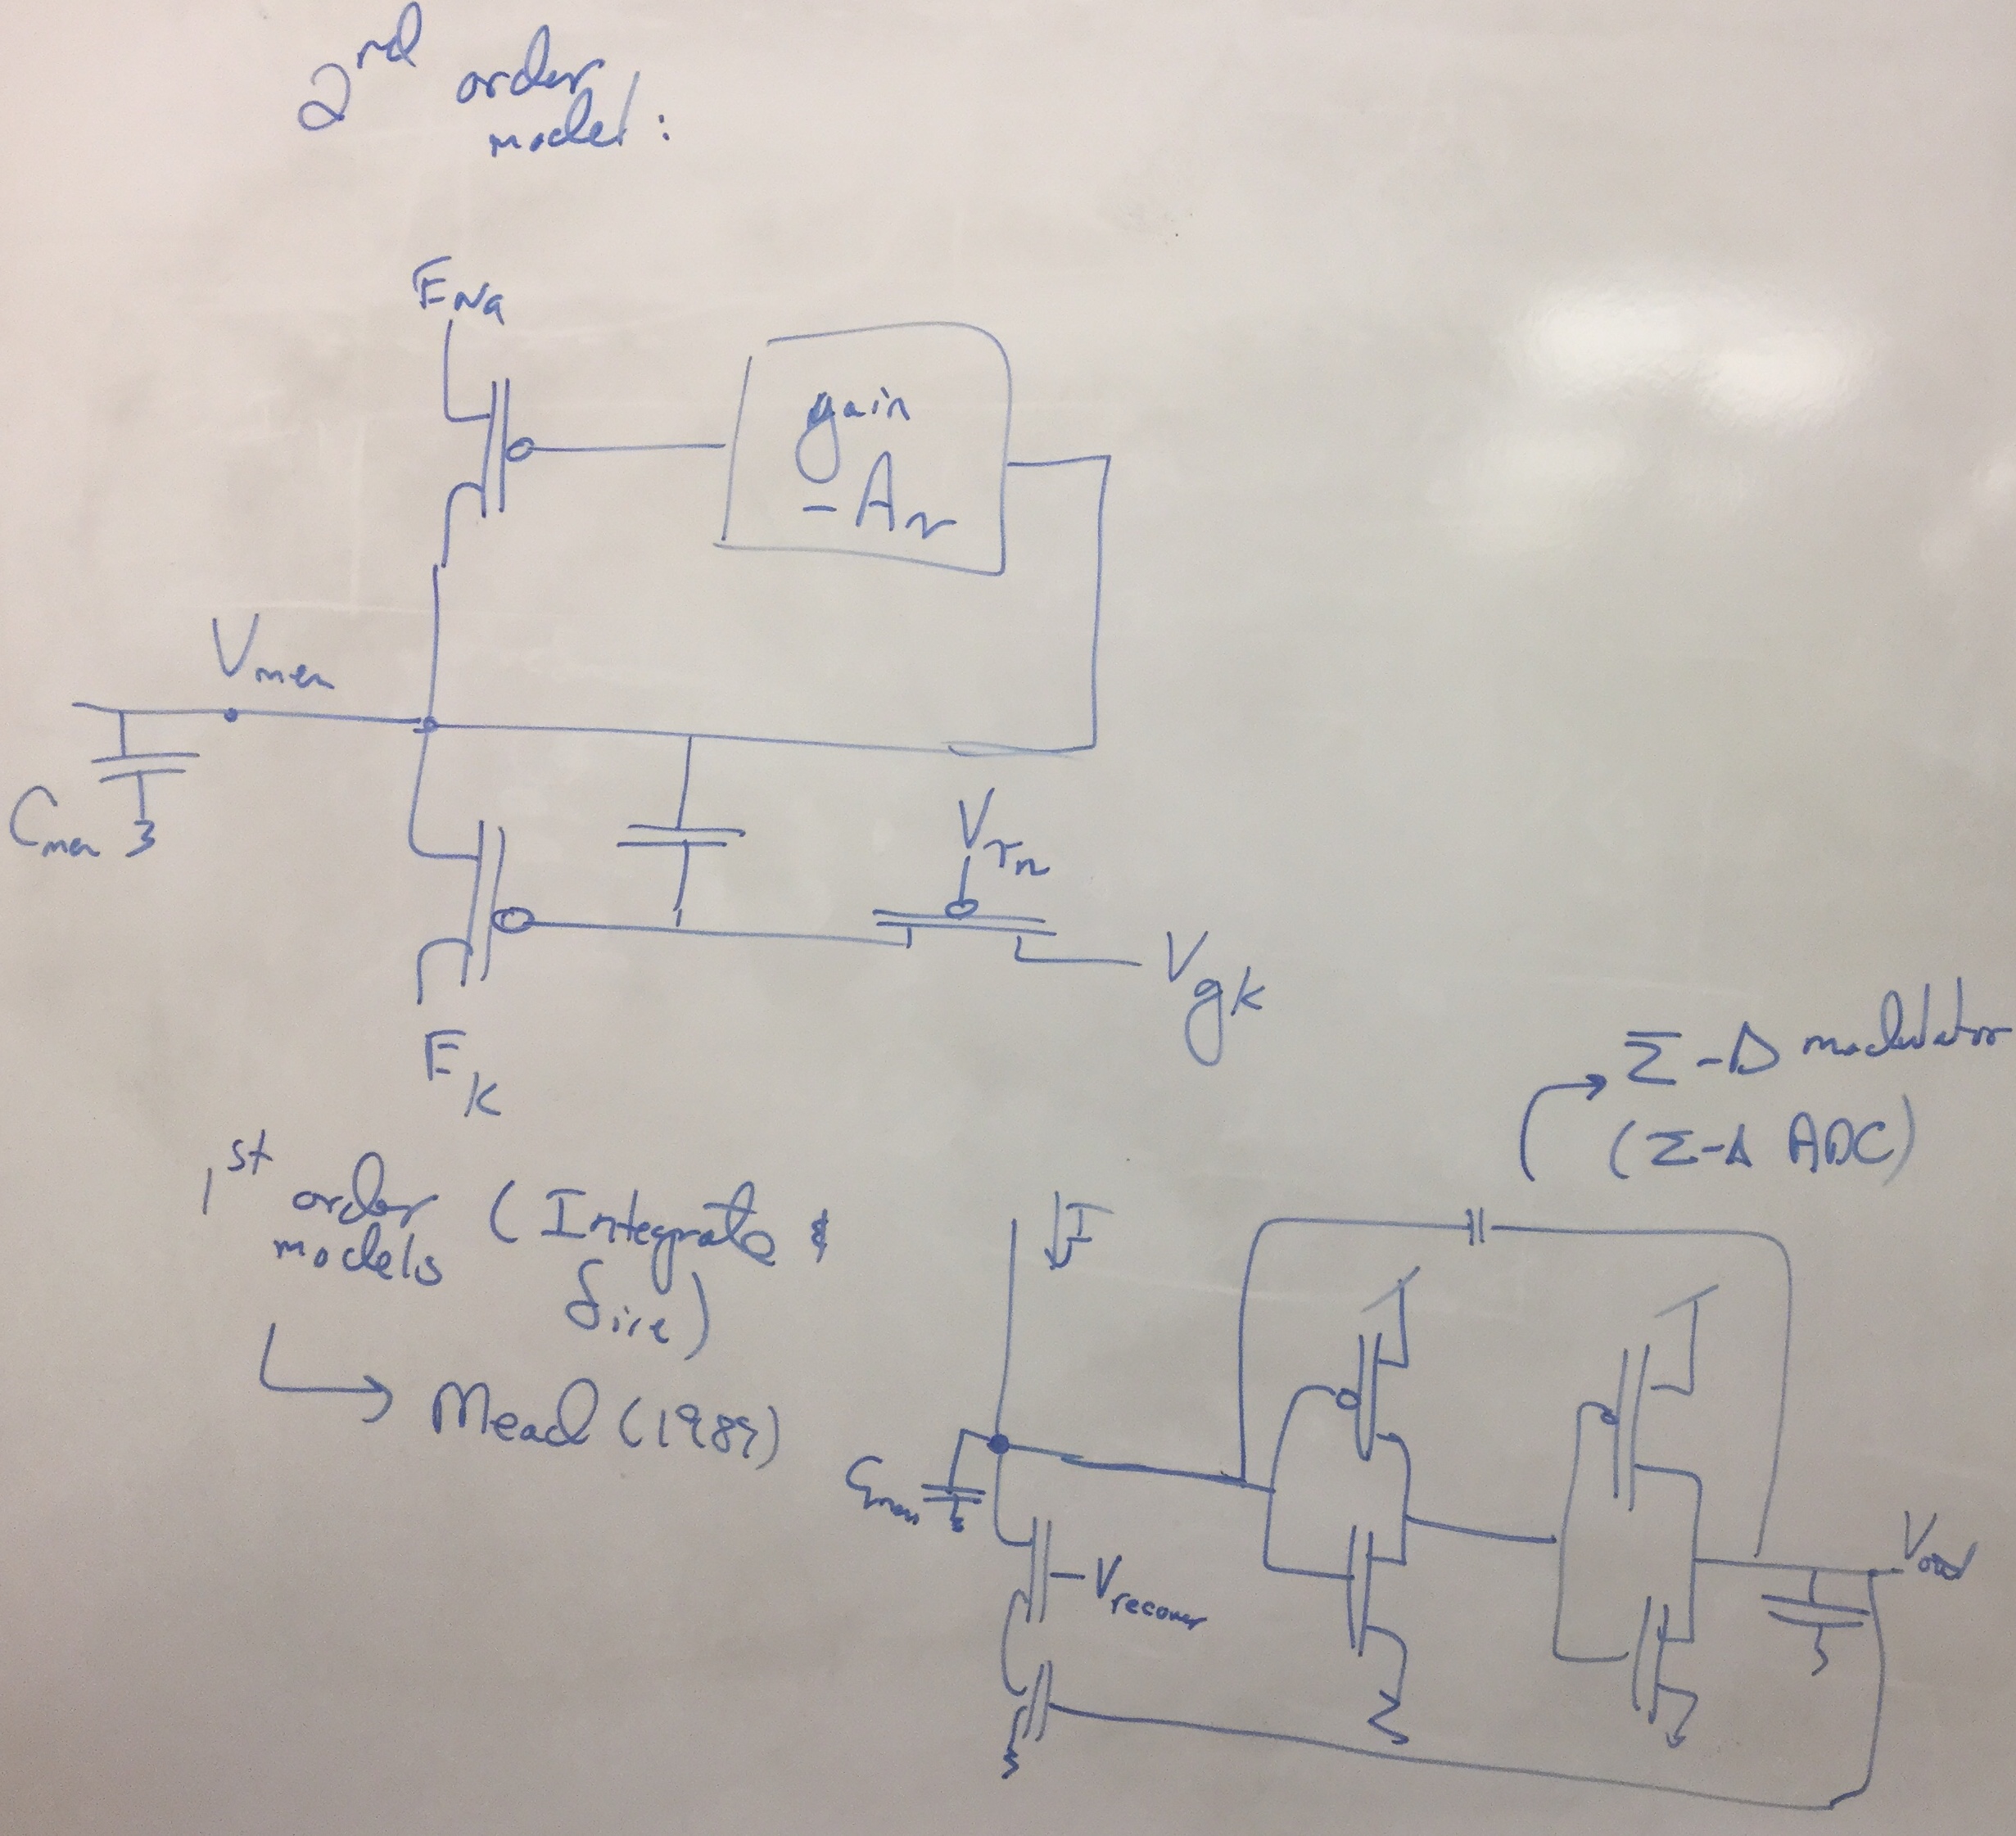 2nd order
model:
ENa
gain
-Av
Vmem
Cmem
Vτn
Vgk
EK
Σ-Δ modulator
(Σ-Δ ADC)
1st order (Integrate &
models fire)
Mead (1989)
I
Cmem
Vrecover
Vout